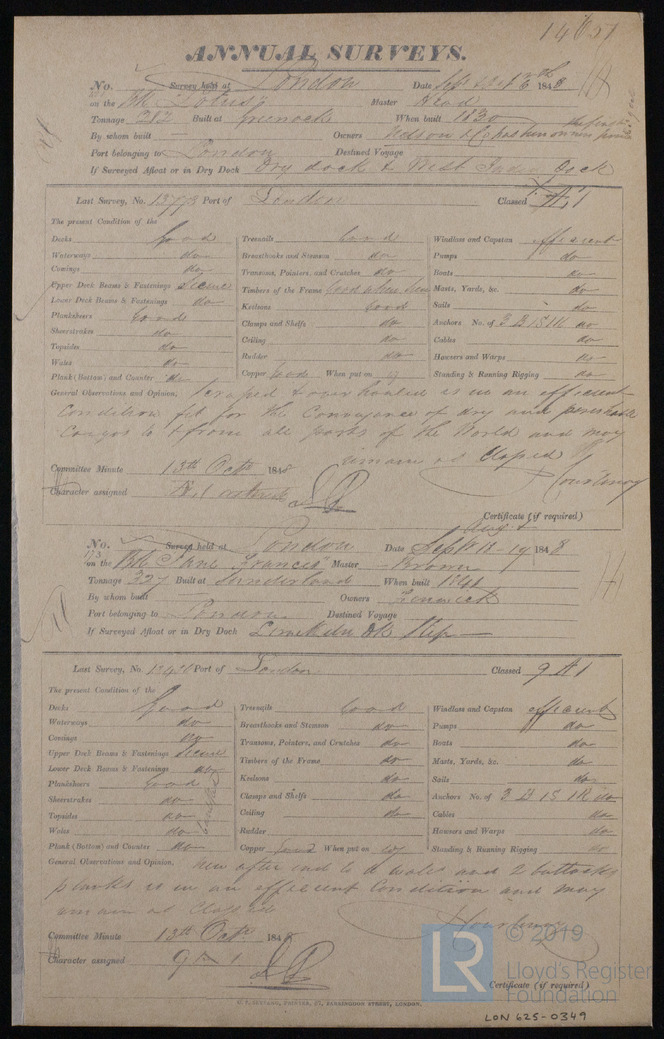 14651
ANNUAL SURVEYS.
No. Survey held at London Date Sept & Oct 6th 1848
on the Bk Lotus Master Head
Tonnage 212 Built at Greenock When built 1820
By whom built — Owners Nelson & Co
Port belonging to London Destined Voyage
If Surveyed Afloat or in Dry Dock Dry dock & West India Dock
Last Survey, No. 13773 Port of London Classed Æ1
The present Condition of the
Decks Good Treenails Good Windlass and Capstan efficient
Waterways do Breasthooks and Stemson do Pumps do
Comings do Transoms, Pointers, and Crutches do Boats do
Upper Deck Beams & Fastenings Secure Timbers of the Frame Good when seen Masts, Yards, &c. do
Lower Deck Beams & Fastenings do Keelsons Good Sails do
Planksheers Good Clamps and Shelfs do Anchors No. of 3 B 1 S 1 K do
Sheerstrakes do Ceiling do Cables do
Topsides do Rudder do Hawsers and Warps do
Wales do Copper Good When put on Standing & Running Rigging do
Plank (Bottom) and Counter do
General Observations and Opinion, Scraped & overhauled is in an efficient
Condition fit for the Conveyance of dry and perishable
Cargos to & from all parts of the World and may
remain as Classed
Courtenay
Committee Minute 13th Octr 1848
Character assigned Æ1
Certificate (if required)
No. Survey held at London Date Augt Septr 11-19 1848
173 on the Bk Jane Frances Master Brown
Tonnage 327 Built at Sunderland When built 1841
By whom built Owners Fenwick
Port belonging to London Destined Voyage
If Surveyed Afloat or in Dry Dock Limekiln Dk Slip
Last Survey, No. Port of London Classed 9 A1
The present Condition of the
Decks Good Treenails Good Windlass and Capstan efficient
Waterways do Breasthooks and Stemson do Pumps do
Comings do Transoms, Pointers, and Crutches do Boats do
Upper Deck Beams & Fastenings Secure Timbers of the Frame do Masts, Yards, &c. do
Lower Deck Beams & Fastenings do Keelsons do Sails do
Planksheers Good Clamps and Shelfs do Anchors No. of 3 B 1 S 1 K do
Sheerstrakes do Ceiling do Cables do
Topsides do Rudder Hawsers and Warps do
Wales do Copper Good When put on Standing & Running Rigging do
Plank (Bottom) and Counter do
General Observations and Opinion, New after end to wales and 2 buttock
planks is in an efficient Condition and may
remain as Classed
Courtenay
Committee Minute 13th Octr 1848
Character assigned 9 A 1
Certificate (if required)
© 2019
LR Lloyd's Register
Foundation
LON 625-0349